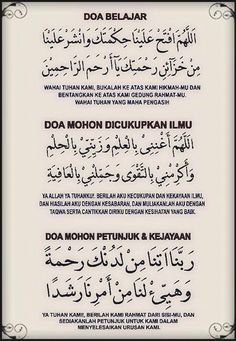 DOA BELAJAR
اَللّٰهُمَّ افْتَحْ عَلَيْنَا حِكْمَتَكَ وَانْشُرْ عَلَيْنَا
مِنْ خَزَآئِنِ رَحْمَتِكَ يَآ اَرْحَمَ الرَّاحِمِيْنَ
WAHAI TUHAN KAMI, BUKALAH KE ATAS KAMI HIKMAH-MU DAN
BENTANGKAN KE ATAS KAMI GEDUNG RAHMAT-MU.
WAHAI TUHAN YANG MAHA PENGASIH
DOA MOHON DICUKUPKAN ILMU
اَللّٰهُمَّ اَغْنِنِيْ بِالْعِلْمِ وَزَيِّنِيْ بِالْحِلْمِ
وَاَكْرِمْنِيْ بِالتَّقْوَى وَجَمِّلْنِيْ بِالْعَافِيَةِ
YA ALLAH YA TUHANKU!. BERILAH AKU KECUKUPAN DAN KEKAYAAN ILMU,
DAN HIASILAH AKU DENGAN KESABARAN, DAN MULIAKANLAH AKU DENGAN
TAQWA SERTA CANTIKKAN DIRIKU DENGAN KESIHATAN YANG BAIK.
DOA MOHON PETUNJUK & KEJAYAAN
رَبَّنَا اٰتِنَا مِنْ لَدُنْكَ رَحْمَةً
وَهَيِّئْ لَنَا مِنْ اَمْرِنَا رَشَدًا
YA TUHAN KAMI, BERILAH KAMI RAHMAT DARI SISI-MU, DAN
SEDIAKANLAH PETUNJUK UNTUK KAMI DALAM
MENYELESAIKAN URUSAN KAMI.